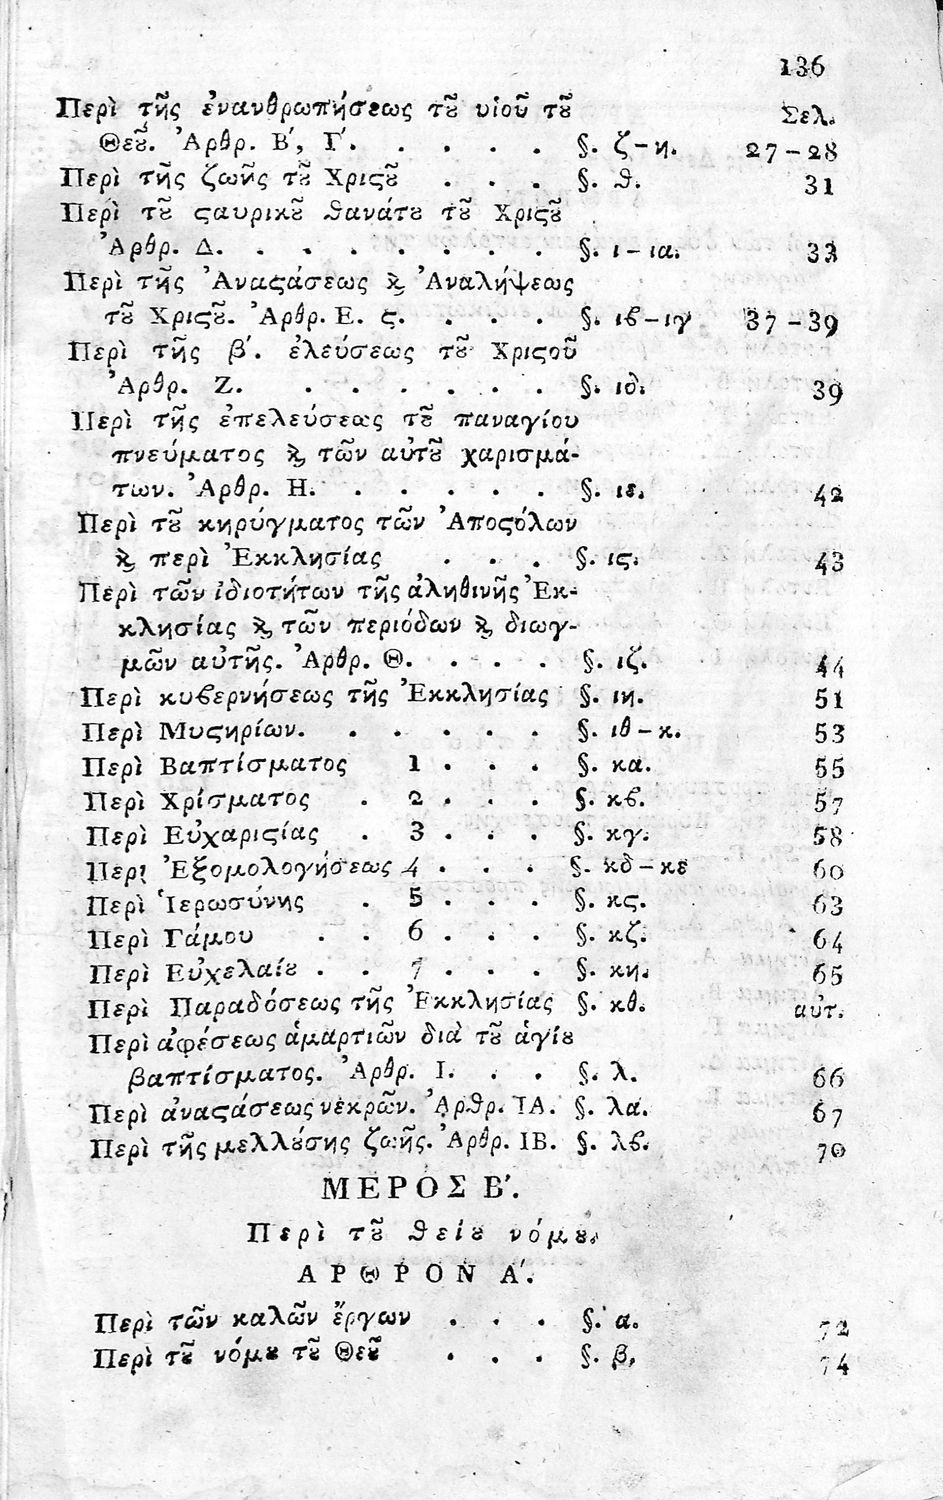 136
Περὶ τῆς ἐνανθρωπήσεως τȣ͂ υἱοῦ τȣ͂ Σελ.
Θεȣ͂. Ἄρθρ. Β΄, Γ΄. . . . . §. ζ-η. 27-28
Περὶ τῆς ζωῆς τȣ͂ Χριϛȣ͂ . . . §. ϑ. 31
Περὶ τȣ͂ ϛαυρικȣ͂ ϑανάτȣ τȣ͂ Χριϛȣ͂
Ἄρθρ. Δ. . . . . . . . §. ι-ια. 33
Περὶ τῆς Ἀναϛάσεως ϗ Ἀναλήψεως
τȣ͂ Χριϛȣ͂. Ἄρθρ. Ε. ϛ. . . . §. ιϐ-ιγ 37-39
Περὶ τῆς β΄. ἐλεύσεως τȣ͂ Χριϛοῦ
Ἄρθρ. Ζ. . . . . . . §. ιδ. 39
Περὶ τῆς ἐπελεύσεως τȣ͂ παναγίου
πνεύματος ϗ τῶν αὐτȣ͂ χαρισμά-
των. Ἄρθρ. Η. . . . . . §. ιε. 42
Περὶ τȣ͂ κηρύγματος τῶν Ἀποϛόλων
ϗ περὶ Ἐκκλησίας . . . §. ιϛ. 43
Περὶ τῶν ἰδιοτήτων τῆς ἀληθινῆς Ἐκ-
κλησίας ϗ τῶν περιόδων ϗ διωγ-
μῶν αὐτῆς. Ἄρθρ. Θ. . . . §. ιζ. 44
Περὶ κυϐερνήσεως τῆς Ἐκκλησίας §. ιη. 51
Περὶ Μυϛηρίων. . . . . . §. ιθ-κ. 53
Περὶ Βαπτίσματος 1 . . . §. κα. 55
Περὶ Χρίσματος . 2 . . . §. κϐ. 57
Περὶ Εὐχαριϛίας . 3 . . . §. κγ. 58
Περὶ Ἐξομολογήσεως 4 . . . §. κδ-κε 60
Περὶ Ἱερωσύνης . 5 . . . §. κϛ. 63
Περὶ Γάμου . . 6 . . . §. κζ. 64
Περὶ Εὐχελαίȣ . . 7 . . . §. κη. 65
Περὶ Παραδόσεως τῆς Ἐκκλησίας §. κθ. αὐτ.
Περὶ ἀφέσεως ἁμαρτιῶν διὰ τȣ͂ ἁγίȣ
βαπτίσματος. Ἄρθρ. Ι. . . §. λ. 66
Περὶ ἀναϛάσεως νεκρῶν. Ἄρϑρ. ΙΑ. §. λα. 67
Περὶ τῆς μελλȣ́σης ζωῆς. Ἄρθρ. ΙΒ. §. λϐ. 70
ΜΕΡΟΣ Β΄.
Περὶ τȣ͂ ϑείȣ νόμȣ.
ΑΡΘΡΟΝ Α΄.
Περὶ τῶν καλῶν ἔργων . . . §. α. 72
Περὶ τȣ͂ νόμȣ τȣ͂ Θεȣ͂ . . . §. β. 74